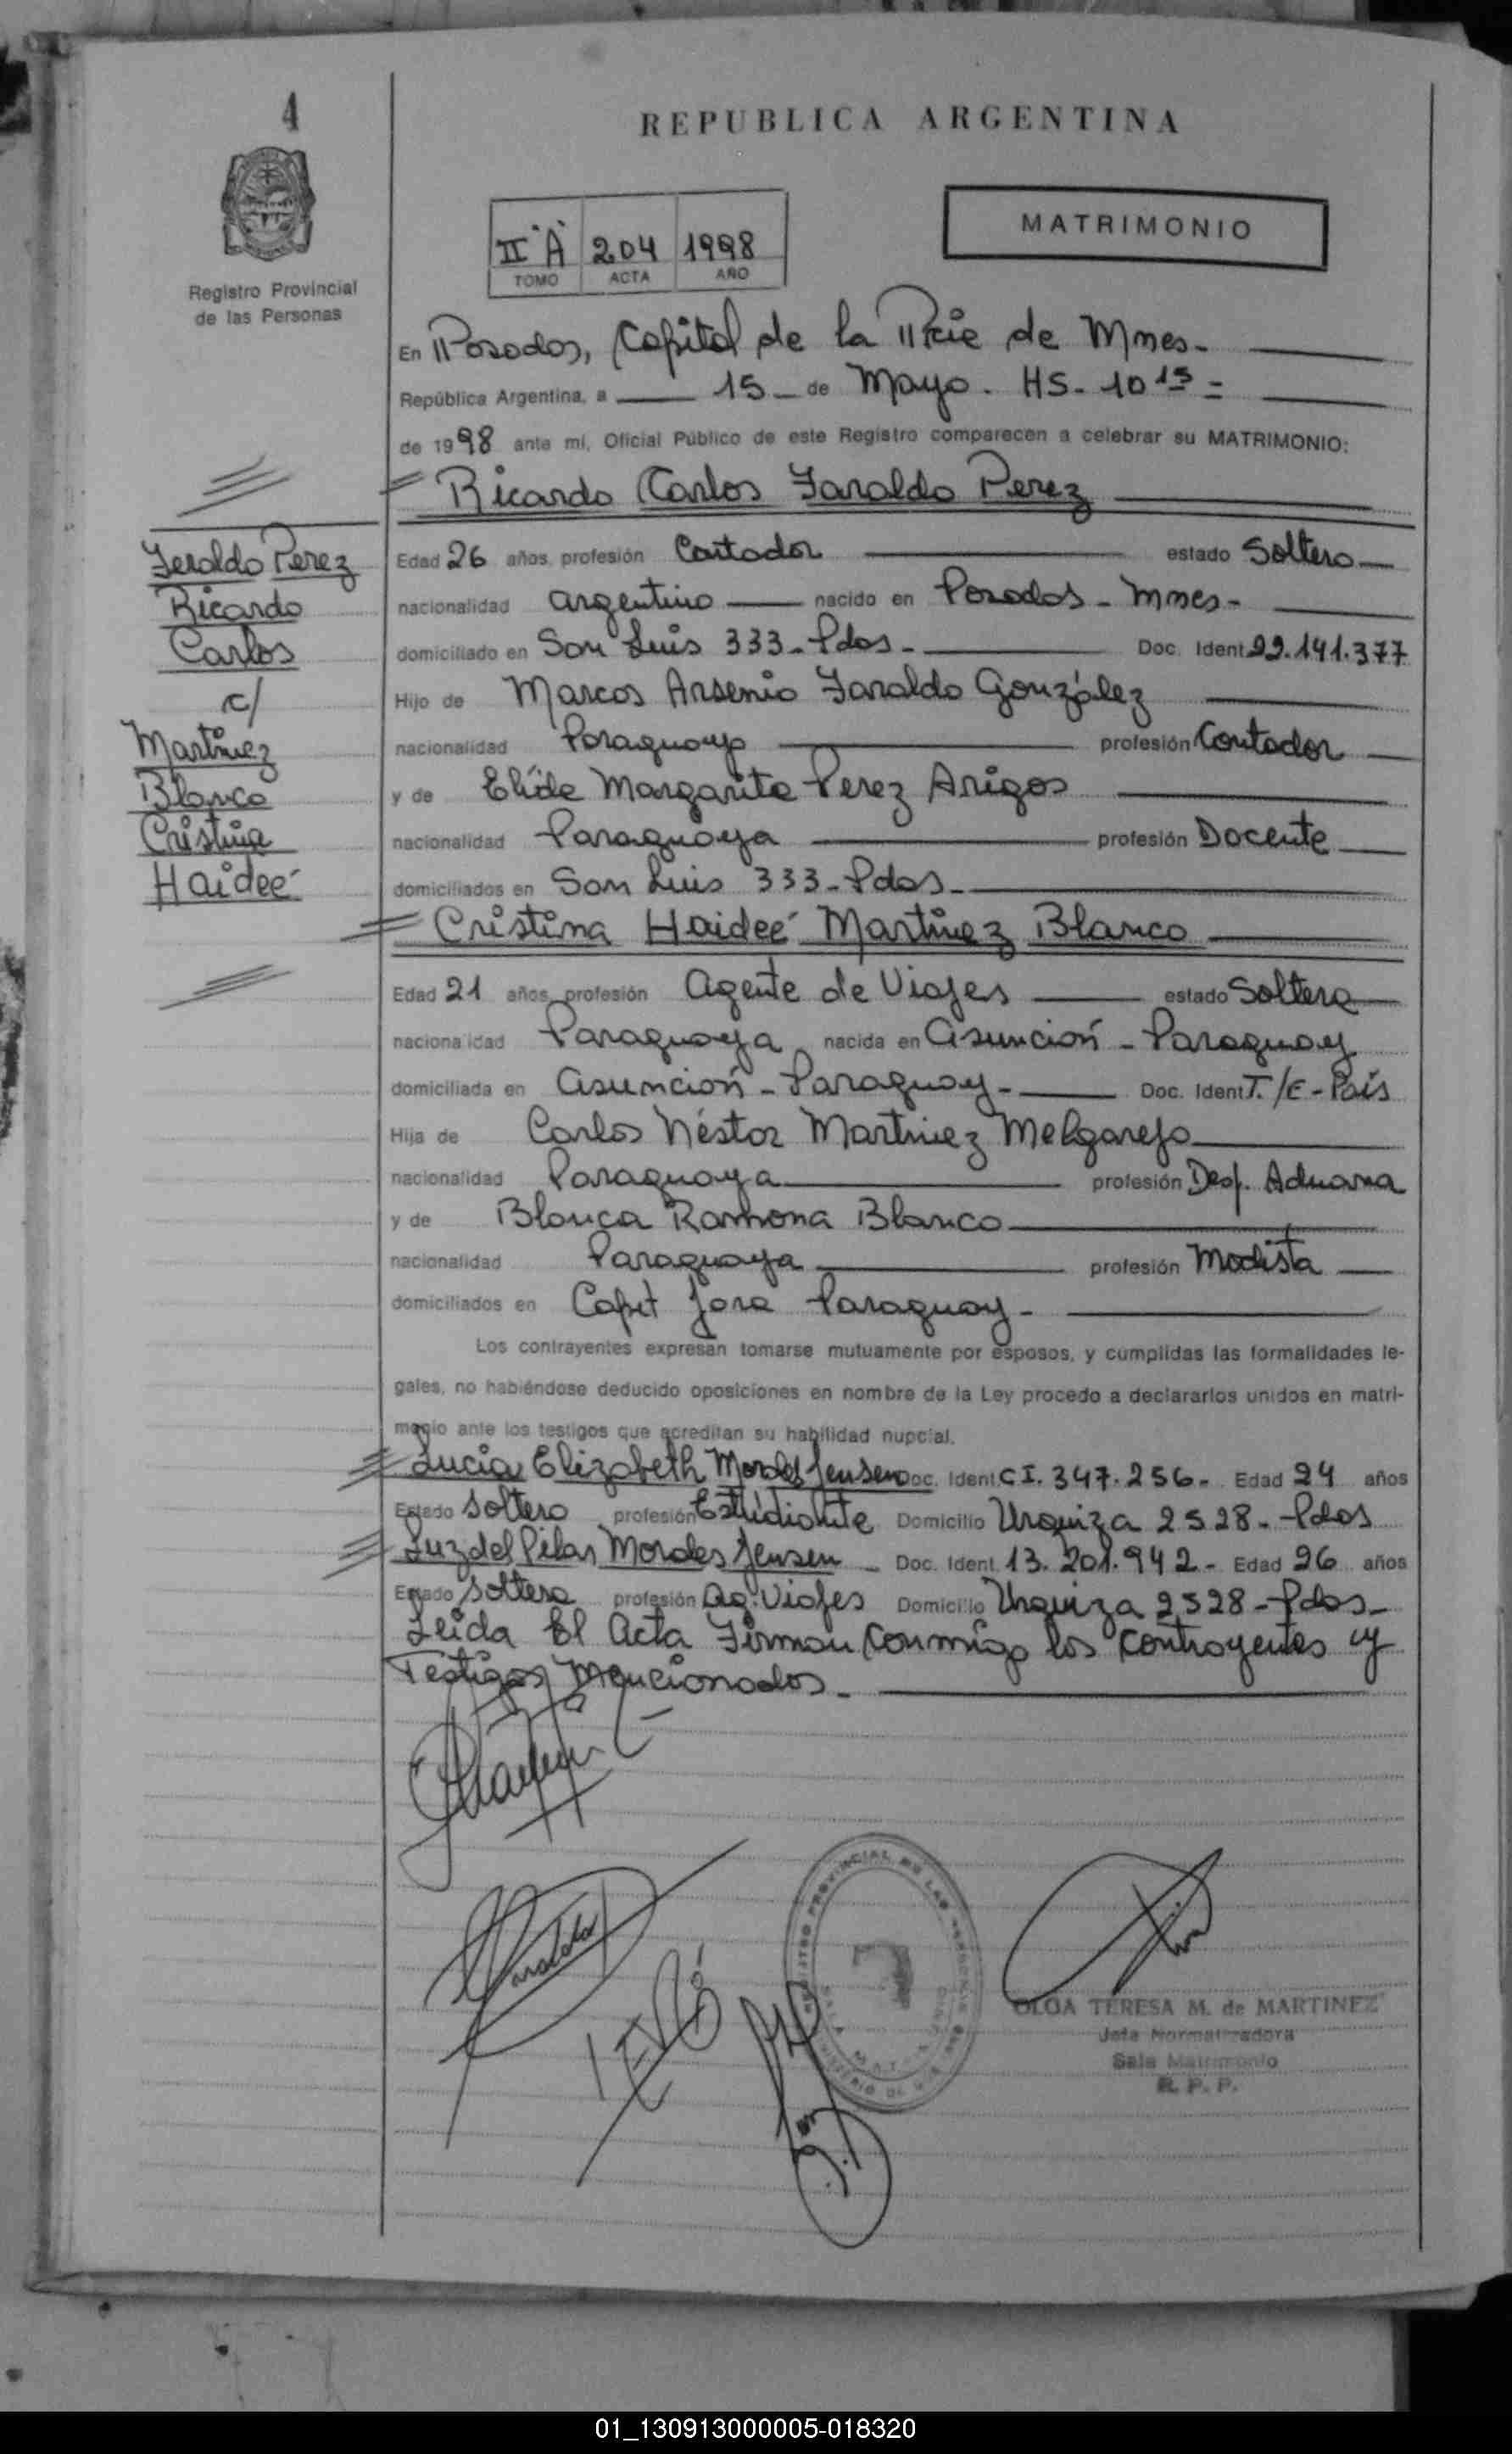 4
REPUBLICA ARGENTINA
II "A" 204 1998
TOMO ACTA AÑO
MATRIMONIO
Registro Provincial
de las Personas
En Posadas, Capital de la Pcie de Mnes-
República Argentina, a 15 - de Mayo. HS- 10 15 -
de 1998 ante mí, Oficial Público de este Registro comparecen a celebrar su MATRIMONIO:
Ricardo Carlos Faraldo Perez
Faraldo Perez
Ricardo
Carlos
c/
Martinez
Blanco
Cristina
Haideé
Edad 26 años, profesión Contador estado Soltero
nacionalidad argentino nacido en Posadas - Mnes-
domiciliado en San Luis 333- Pdas- Doc. Ident. 22.141.377
Hijo de Marcos Arsenio Faraldo González
nacionalidad Paraguayo profesión Contador
y de Elida Margarita Perez Arigos
nacionalidad Paraguaya profesión Docente
domiciliados en San Luis 333- Pdas-
Cristina Haideé Martinez Blanco
Edad 21 años, profesión Agente de Viajes estado Soltera
nacionalidad Paraguaya nacida en asunción - Paraguay
domiciliada en asunción - Paraguay- Doc. Ident. T./E - País
Hija de Carlos Néstor Martinez Melgarejo
nacionalidad Paraguaya profesión Desp. Aduana
y de Blanca Ramona Blanco
nacionalidad Paraguaya profesión Modista
domiciliados en Capit Jara Paraguay-
Los contrayentes expresan tomarse mutuamente por esposos, y cumplidas las formalidades le-
gales, no habiéndose deducido oposiciones en nombre de la Ley procedo a declararlos unidos en matri-
monio ante los testigos que acreditan su habilidad nupcial.
Lucia Elizabeth Morales Jensen Doc. Ident. C I. 347.256- Edad 24 años
Estado Soltera profesión Estudiante Domicilio Urquiza 2528- Pdas
Luz del Pilar Morales Jensen - Doc. Ident. 13.201.942- Edad 26 años
Estado Soltera profesión Ag. Viajes Domicilio Urquiza 2528- Pdas-
Leida El Acta Firman Conmigo los Contrayentes y
Testigos Mencionados-
REGISTRO PROVINCIAL DE LAS PERSONAS
OLGA TERESA M. de MARTINEZ
Jefa Normalizadora
Sala Matrimonio
R. P. P.
01_130913000005-018320